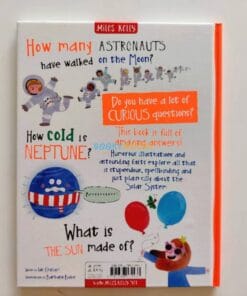 MILES KELLY
How many ASTRONAUTS
have walked on the Moon?
Do you have a lot of
CURIOUS questions?
This book is full of
amazing answers!
How cold is
NEPTUNE?
Humorous illustrations and
astounding facts explore all that
is stupendous, spellbinding and
just plain silly about the
Solar System
What is
THE SUN made of?